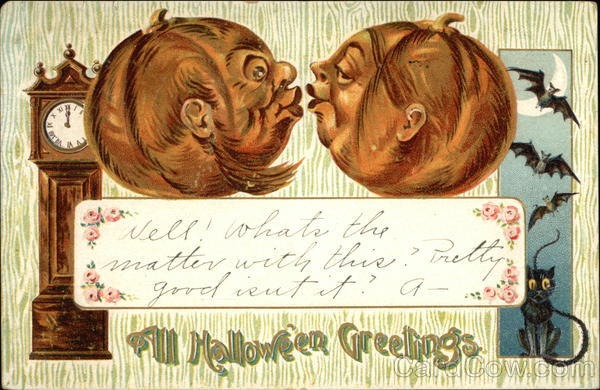 Nell! Whats the
matter with this? Pretty
good isn't it? A—
All Hallowe'en Greetings.
CardCow.com